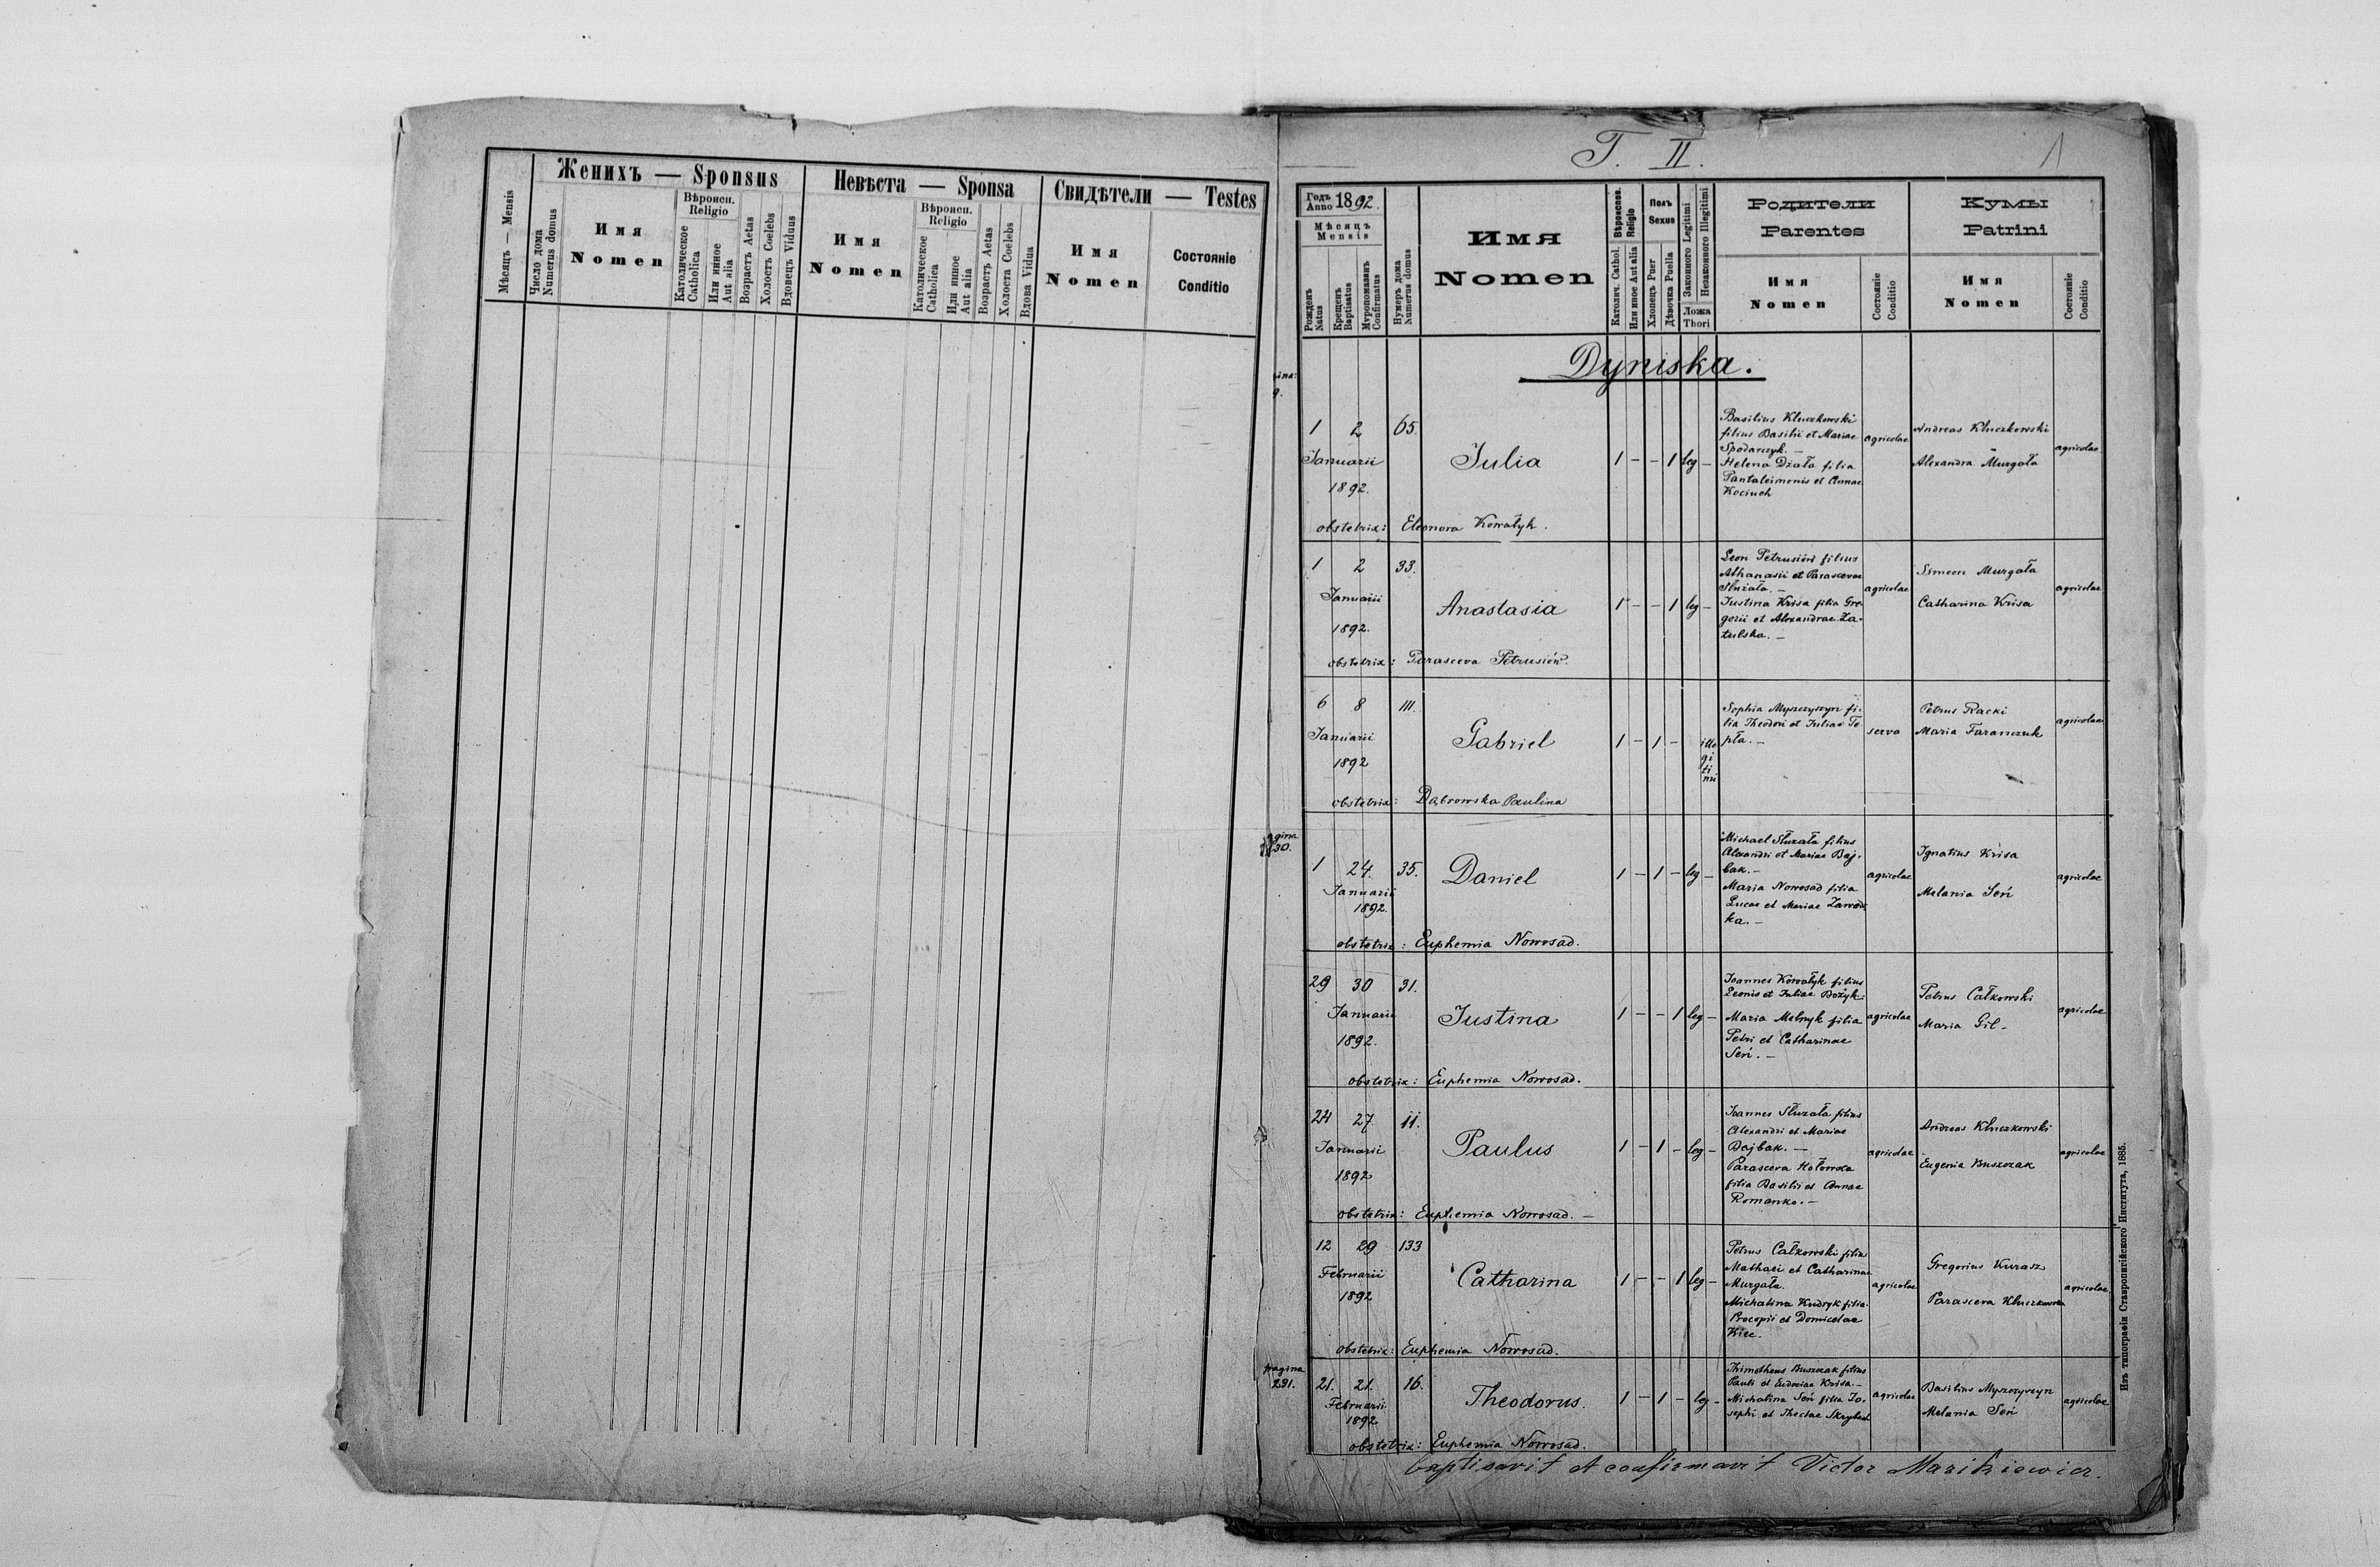 Женихъ — Sponsus
Невѣста — Sponsa
Свидѣтели — Testes
Мѣсяцъ — Mensis
Число дома
Numerus domus
Имя
Nomen
Вѣроисп.
Religio
Католическое
Catholica
Или инное
Aut alia
Возрастъ Aetas
Холостъ Coelebs
Вдовецъ Viduus
Имя
Nomen
Вѣроисп.
Religio
Католическое
Catholica
Или инное
Aut alia
Возрастъ Aetas
Холоста Coelebs
Вдова Vidua
Имя
Nomen
Состояніе
Conditio
T. II.
1
Годъ
Anno 1892.
Мѣсяцъ
Mensis
Рожденъ
Natus
Крещенъ
Baptisatus
Мѵропомазанъ
Confirmatus
Нумеръ дома
Numerus domus
Имя
Nomen
Вѣроиспов.
Religio
Католич. Cathol.
Или иное Aut alia
Полъ
Sexus
Хлопецъ Puer
Дѣвочка Puella
Законного Legitimi
Незаконного Illegitimi
Ложа
Thori
Родители
Parentes
Имя
Nomen
Состояніе
Conditio
Кумы
Patrini
Имя
Nomen
Состояніе
Conditio
Dyniska.
1 2 65.
Januarii
1892.
Julia
1 - - 1 leg -
Basilius Kluczkowski
filius Basilii et Mariae
Spodarczyk. -
Helena Dżała filia
Pantaleimonis et Annae
Kociuch
agricolae
Andreas Kluczkowski
Alexandra Murgała
agricolae
obstetrix: Eleonora Kowałyk.
1 2 33.
Januarii
1892.
Anastasia
1 - - 1 leg -
Leon Petrusiów filius
Athanasii et Parascevae
Służała. -
Justina Krisa filia Gre-
gorii et Alexandrae Za-
tulska. -
agricolae
Simeon Murgała
Catharina Krisa
agricolae
obstetrix: Parasceva Petrusiów.
6 8 111.
Januarii
1892
Gabriel
1 - 1 - ille
gi
ti
mi
Sophia Myszczyszyn fi-
lia Theodori et Juliae Te-
pła. -
serva
Petrus Racki
Maria Faranczuk
agricolae
obstetrix: Dąbrowska Paulina
pagina
230.
1 24. 35.
Januarii
1892.
Daniel
1 - 1 - leg -
Michael Służała filius
Alexandri et Mariae Baj-
bak. -
Maria Nowosad filia
Lucae et Mariae Zawadz
ka. -
agricolae
Ignatius Krisa
Melania Seń
agricolae
obstetrix: Euphemia Nowosad.
29 30 31.
Januarii
1892.
Justina
1 - - 1 leg -
Joannes Kowałyk filius
Leonis et Juliae Bożyk.
Maria Melnyk filia
Petri et Catharinae
Seń. -
agricolae
Petrus Całkowski
Maria Gil -
agricolae
obstetrix: Euphemia Nowosad.
24 27 11.
Januarii
1892
Paulus
1 - 1 - leg -
Joannes Służała filius
Alexandri et Mariae
Bajbak. -
Parasceva Hołowka
filia Basilii et Annae
Romanko. -
agricolae
Andreas Kluczkowski
Eugenia Buszczak
agricolae
obstetrix: Euphemia Nowosad. -
12 29 133
Februarii
1892
Catharina
1 - - 1 leg -
Petrus Całkowski filius
Mathaei et Catharinae
Murgała.
Michalina Kudryk filia
Procopii et Domicelae
Kiec.
agricolae
Gregorius Kurasz
Parasceva Kluczkowska
agricolae
obstetrix: Euphemia Nowosad.
pagina
231.
21. 21. 16.
Februarii
1892
Theodorus.
1 - 1 - leg -
Thimotheus Buszczak filius
Pauli et Eudociae Krisa. -
Michalina Seń filia Jo-
sephi et Theclae Skryback
agricolae
Basilius Myszczyszyn
Melania Seń
agricolae
obstetrix: Euphemia Nowosad.
baptisavit et confirmavit Victor Mazikiewicz.
Изъ типографіи Ставропигійского Института, 1885.